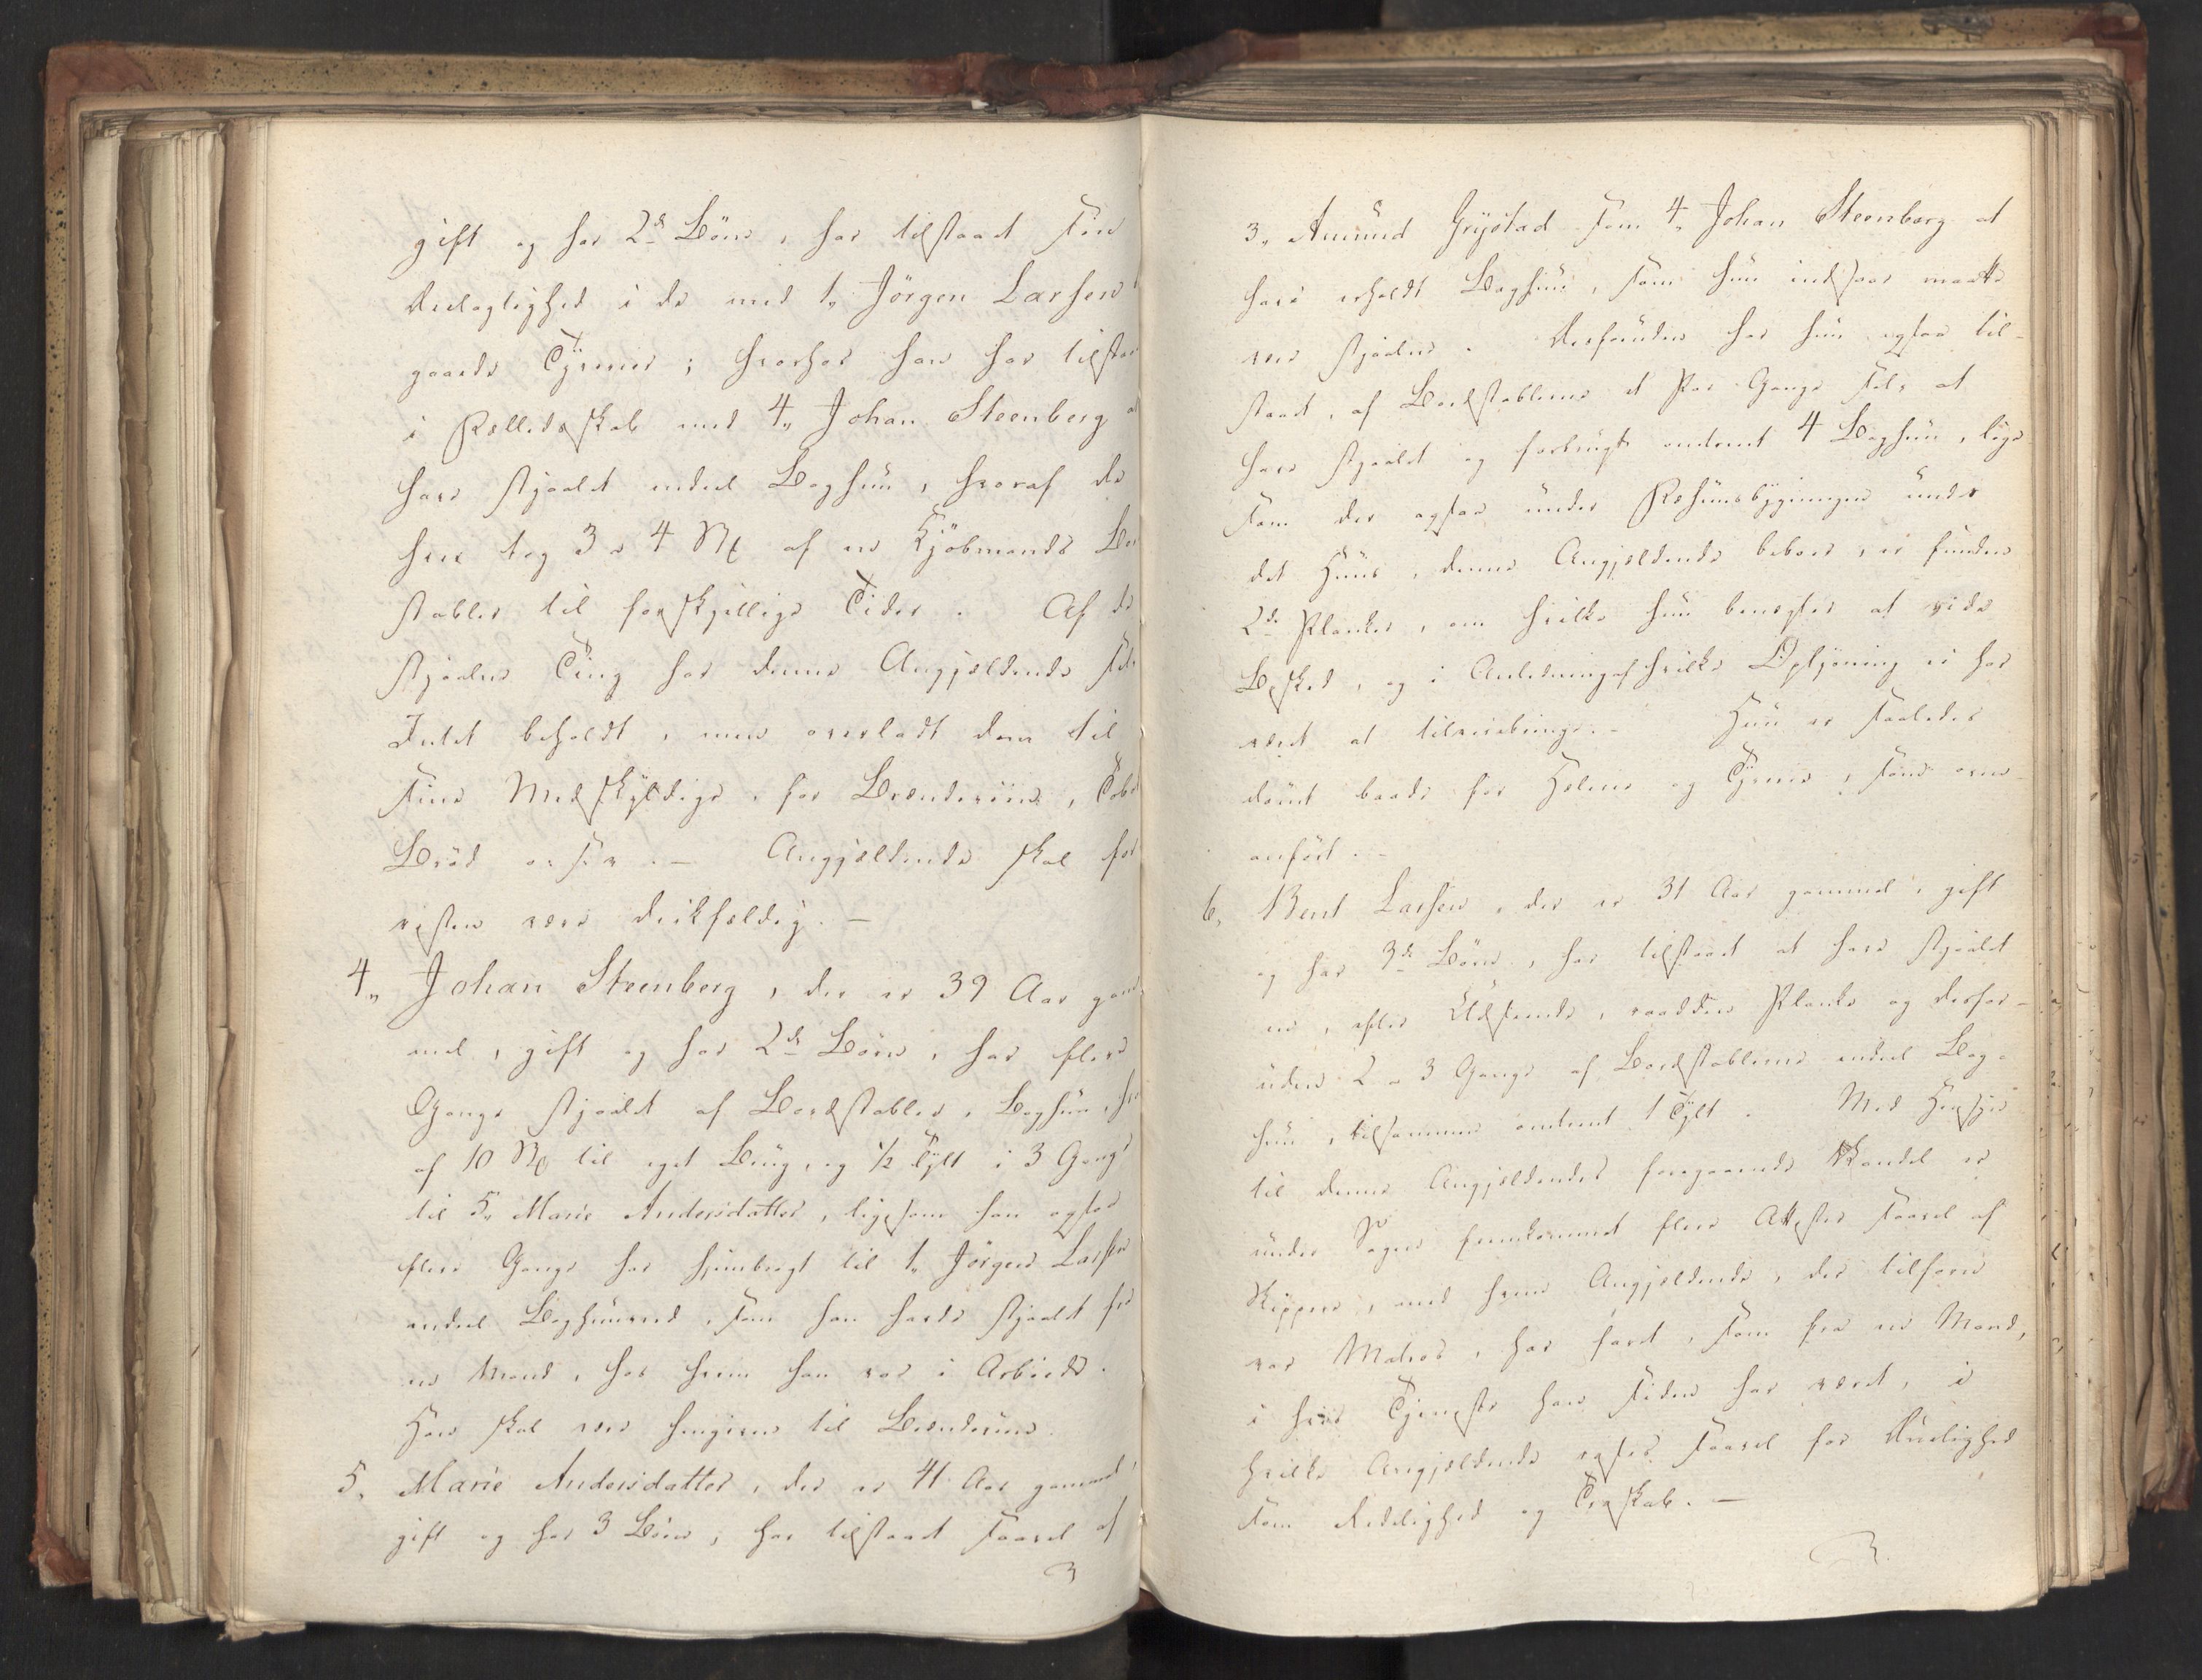 gift og har 2de Børn, har tilstaaet sin
Deelagtighed i de med 1, Jörgen Larsen
gaaede Tyverier; hvorhos han har tilstaa
i Fælledsskab med 4, Johan Steenberg a
have stjaalet endeel Baghun, hvoraf de
hver tog 3 a 4 St af en Kjöbmands Bor
stabler til forskjellige Tider. Af de
stjaalne Ting har denne Angjældende selv
Intet beholdt, men overladt dem til
sine Medskyldige, for Brændeviin, Toba
Bröd o: s: v: — Angjældende skal for
resten være drikfældig. —
4, Johan Steenberg, der er 39 Aar gam
mel, gift og har 2de Børn, har flere
Gange stjaalet af Bordstabler, Baghun, hvor
af 10 St til eget Brug, og 1/2 Tylt i 3 Gange
til 5, Marie Andersdatter, ligesom han ogsaa
flere Gange har hjembragt til 1, Jörgen Larsen
endeel Baghunved, som han havde stjaalet fra
en Mand, hos hvem han var i Arbeide.
Han skal være hengiven til Brændeviin.
5, Marie Andersdatter, der er 41 Aar gammel,
gift og har 3 Børn, har tilstaaet saavel af
3, Amund Grÿstad som 4, Johan Steenberg at
have erholdt Baghun, som hun indsaae maatte
være stjaalne. Desforuden har hun ogsaa til-
staaet, af Bordstablerne et Par Gange selv at
have stjaalet og forbrugt omtrent 4 Baghun, lige
som der ogsaa under Ræhuusbygningen under
det Huus, denne Angjældende beboer, er funden
2de Planker, om hvilke hun benægter at vide
Besked, og i Anledning af hvilke Oplysning ei har
været at tilveiebringe. — Hun er saaledes
dömt baade for Hæleri og Tyverie, som oven-
anfört. —
6, Bent Larsen, der er 31 Aar gammel, gift
og har 3de Børn, har tilstaaet at have stjaalet
en, efter Udseende, raadden Planke og desfor-
uden 2 a 3 Gange af Bordstablerne endeel Bag-
hun, tilsammen omtrent 1 Tylt. Med Hensyn
til denne Angjældendes foregaaende Vandel er
under Sagen fremkommet flere Attester saavel af
Skippere, med hvem Angjældende, der tilforn
var Matros, har faret, som fra en Mand,
i hvis Tjeneste han siden har været, i
hvilke Angjældende roses saavel for Duelighed
som Redelighed og Troskab. —